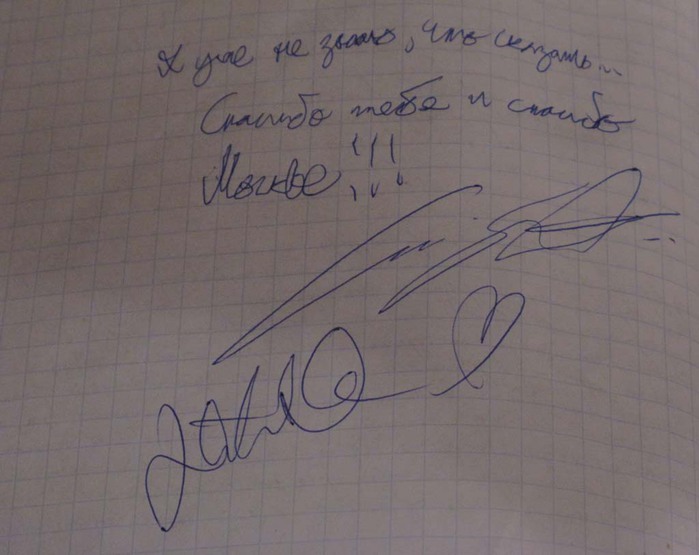 Я уже не знаю, что сказать...
Спасибо тебе и спасибо
Москве!!!